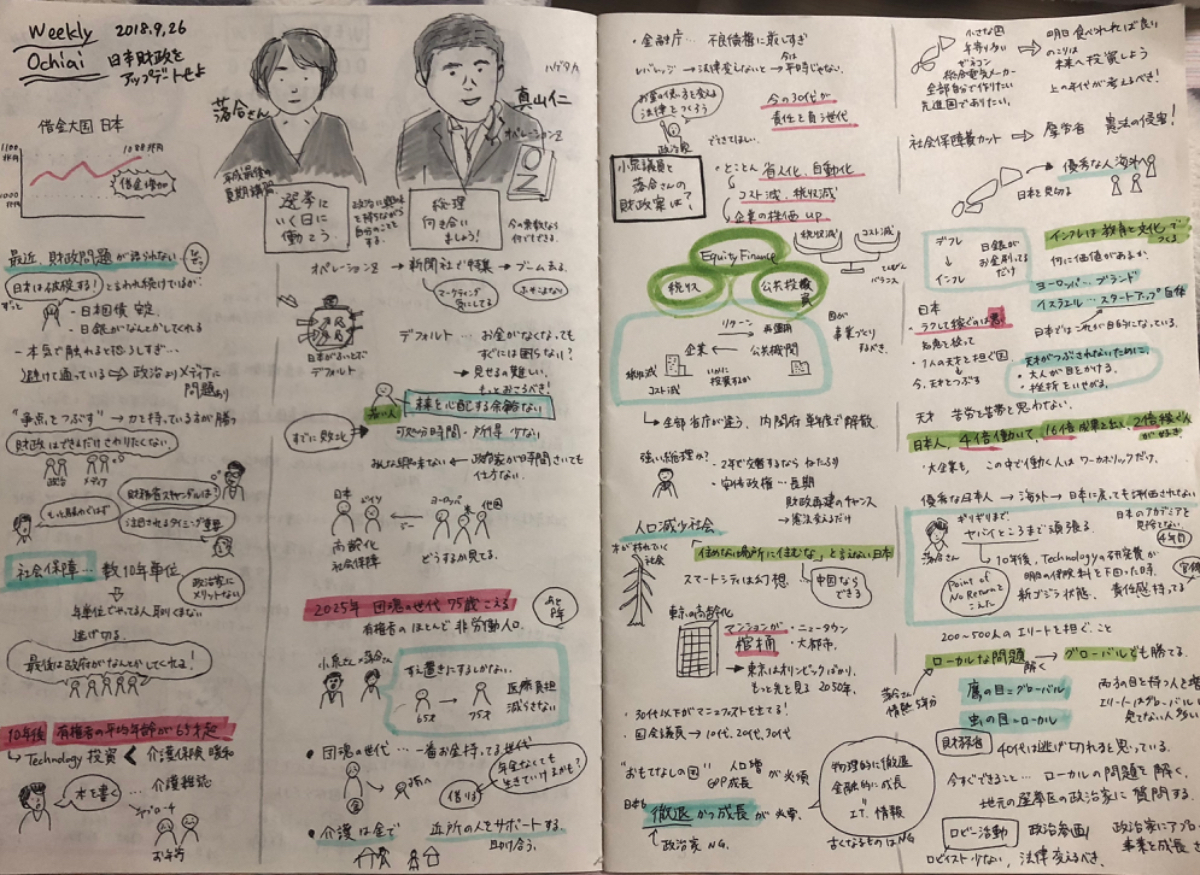 Weekly
Ochiai
2018.9.26
日本財政を
アップデートせよ
落合さん
ハゲタカ
真山仁
オペレーションZ
借金大国 日本
1100
兆円
1000
兆円
借金増加
平成最後の
夏期講習
選挙に
いく日に
働こう
政治に興味
を持ちながら
自分のことを
する。
総理
向き合い
ましょう!
今の票数なら
何でもできる。
最近、財政問題が語られない
日本は破綻する!
と言われ続けているが、
ずっと
- 日本国債 安定
- 日銀がなんとかしてくれる
- 本気で触れると恐ろしすぎ…
避けて通っている ⇨ 政治よりメディアに
問題あり
"争点をつぶす" → 力を持っている方が勝つ
財政はできるだけさわりたくない
政治 メディア
財務省スキャンダルは?
もっと騒がぐはず
注目されるタイミング
社会保障… 数10年単位
政治家に
メリットない
年単位でやってる人 取りくまない
逃げ切る
最後は政府がなんとかしてくれる!
10年後 有権者の平均年齢が65才超
→ Technology 投資 < 介護保険 暖和
本を書く … 介護雑誌
お年寄
オペレーションZ → 新聞社で特集 → ブーム去る。
マーケティング
気にしてる
日本がないとボ
デフォルト
デフォルト… お金がなくなっても
すぐには困らない?
→ 見せるの難しい。
もっとおこるべき!
若い人
未来を心配する余裕ない
すでに敗北
可処分時間・所得 少ない
みんな興味ない ← 政治家が時間さいても
仕方ない。
日本 ドイツ
高齢化
社会保障
ヨーロッパ 米 他国
どうするか見てる。
2025年 団塊の世代 75歳こえる
有権者のほとんど 非労働人口。
小泉さん×落合さん
すえ置きにするしかない。
65才 → 75才
医療負担
減らさない
・団塊の世代… 一番お金持ってる世代
金
孫へ
借りる
年金なくても
生きていけるかも?
・介護は金で 近所の人をサポートする。
助け合う。
・金融庁… 不良債権に厳しすぎ
レバレッジ → 法律変しないと → 今は
平時じゃない。
お金の使い方を変える
法律をつくろう
政治家
できてほしい。
今の30代が
責任を負う世代
小泉議員と
落合さんの
財政案は?
・とことん 省人化、自動化
コスト減、税収減
企業の株価 up
Equity Finance
税リス
公共投資
税収減 コスト減
てんびん
バランス
リターン
再運用
企業 ← 公共機関
税収減
コスト減
いかに
投資するか
国が
事業づくり
するべき。
→ 全部省庁が違う、内閣府 単独で解散。
強い総理か?
- 2年で交替するなら ねたふり
- 安倍政権… 長期
財政再建のチャンス
→ 憲法変えるだけ
人口減少社会
木が枯れていく
社会
"住めない場所に住むな"と言えない日本
スマートシティは幻想。
中国なら
できる
東京の高齢化
マンションが
棺桶
・ニュータウン
・大都市。
→ 東京はオリンピックばかり。
もっと先を見る 2050年。
・30代以下がマニュフェストを出てる!
・国会議員 → 10代、20代、30代
"おもてなしの国" 人口増
GDP成長 が必須
日本も
徹退 かつ成長 が必要。
政治家 NG。
物理的に徹退
金融的に成長
エア、情報
古くなるものはNG
小さな国
年寄り多い
ゼネコン
総合電気メーカー
全部自分で作りたい
先進国でありたい。
明日 食べられれば良い
のこりは
未来へ投資しよう
上の年代が考えるべき!
社会保障費カット ⇨ 厚労省 憲法の侵害!
優秀な人 海外へ
日本を見切る
デフレ
↓
インフレ
日銀が
お金刷ってる
だけ
インフレは教育と文化で
つくる
何に価値があるか。
ヨーロッパ… ブランド
イスラエル… スタートアップ自体
日本ではこれが目的になっている。
日本
・ラクして稼ぐのは悪い
知恵を絞って
・1人の天才を担ぐ国
今、天才をつぶす
天才がつぶされないために。
・大人が目をかける。
・挫折をいやがる。
天才 苦労を苦労と思わない。
日本人、4倍働いて、16倍成果を出し、2倍稼ぐ人
が好き。
・大企業も、この中で働く人は ワーカホリックだけ。
優秀な日本人 → 海外 → 日本に戻っても評価されない
日本のアカデミアを
4年目
落合さん
ギリギリまで、
ヤバイところまで頑張る。
Point of
No Returnを
こえた
→ 10年後、Technologyの研究費が
明日の保険料を下回った時、
新ゴジラ状態、責任感持ってる
200~500人のエリートを担ぐこと
ローカルな問題 → 解く → グローバルでも勝てる。
落合さん
情熱5年分
鷹の目=グローバル
虫の目=ローカル
両方の目を持つ人を
エリートはグローバル
見てない人多い
財務省 40代は逃げ切れると思っている。
今すぐできること… ローカルの問題を解く。
地元の選挙区の政治家に質問する。
ロビー活動 政治参画! 政治家にアプロ
事業を成長
ロビイスト少ない、法律変えるべき。